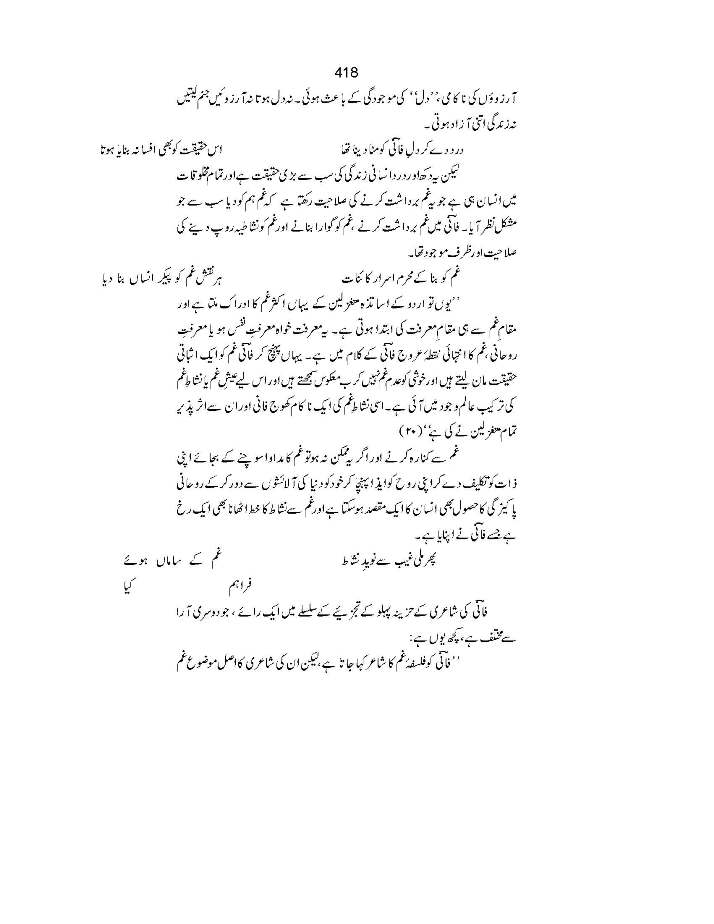 418
آرزوؤں کی ناکامی، ’’دل‘‘ کی موجودگی کے باعث ہوئی۔ نہ دل ہوتا نہ آرزوئیں جنم لیتیں
نہ زندگی اتنی آزاد ہوتی۔
درد دے کر دلِ فانیؔ کو مٹا دینا تھا اس حقیقت کو بھی افسانہ بنایا ہوتا
لیکن یہ دکھ اور درد انسانی زندگی کی سب سے بڑی حقیقت ہے اور تمام مخلوقات
میں انسان ہی ہے جو یہ غم برداشت کرنے کی صلاحیت رکھتا ہے کہ غم ہم کو دیا سب سے جو
مشکل نظر آیا۔ فانیؔ میں غم برداشت کرنے، غم کو گوارا بنانے اور غم کو نشاطیہ روپ دینے کی
صلاحیت اور ظرف موجود تھا۔
غم کو بنا کے محرم اسرار کائنات ہر نقش غم کو پیکر انساں بنا دیا
’’یوں تو اردو کے اساتذہ متغزلین کے یہاں اکثر غم کا ادراک ملتا ہے اور
مقامِ غم سے ہی مقامِ معرفت کی ابتدا ہوتی ہے۔ یہ معرفت خواہ معرفتِ نفس ہو یا معرفتِ
روحانی، غم کا انتہائی نقطۂ عروج فانیؔ کے کلام میں ہے۔ یہاں پہنچ کر فانیؔ غم کو ایک اثباتی
حقیقت مان لیتے ہیں اور خوشی کو عدم غم نہیں کرب معکوس سمجھتے ہیں اور اس لیے عیشِ غم یا نشاطِ غم
کی ترکیب عالم وجود میں آئی ہے۔ اسی نشاطِ غم کی ایک ناکام کھوج فانی اور ان سے اثر پذیر
تمام متغزلین نے کی ہے‘‘ (۲۰)
غم سے کنارہ کرنے اور اگر یہ ممکن نہ ہو تو غم کا مداوا سوچنے کے بجائے اپنی
ذات کو تکلیف دے کر اپنی روح کو ایذا پہنچا کر خود کو دنیا کی آلائشوں سے دور کر کے روحانی
پاکیزگی کا حصول بھی انسان کا ایک مقصد ہوسکتا ہے اور غم سے نشاط کا حظ اٹھانا بھی ایک رخ
ہے جسے فانیؔ نے اپنایا ہے۔
پھر ملی غیب سے نوید نشاط غم کے ساماں ہوئے
فراہم کیا
فانیؔ کی شاعری کے حزینہ پہلو کے تجزیے کے سلسلے میں ایک رائے، جو دوسری آرا
سے مختلف ہے، کچھ یوں ہے:
’’فانیؔ کو فلسفۂ غم کا شاعر کہا جاتا ہے لیکن ان کی شاعری کا اصل موضوع غم